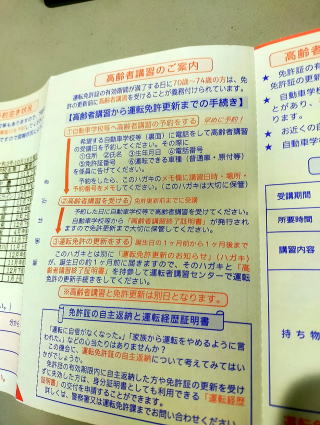 高齢者講習のご案内
運転免許証の有効期間が満了する日に70歳〜74歳の方は、免
許の更新前に高齢者講習を受けることが義務付けられています。
【高齢者講習から運転免許更新までの手続き】
①自動車学校等へ高齢者講習の予約をする 早めに予約!
希望する自動車学校等(裏面)に電話をして高齢者講習
の受講日を予約してください。その際に
①住所 ②氏名 ③生年月日 ④電話番号
⑤免許証番号 ⑥運転できる車種(普通車・原付等)
を係員に告げてください。
予約をしたら、このハガキのメモ欄に講習日時・場所・
予約番号をメモしてください。(このハガキは大切に保管)
②高齢者講習を受ける 免許更新前までに受講
予約した日に自動車学校等で高齢者講習を受けてください。
自動車学校等から「高齢者講習終了証明書」が発行され
ますので免許更新まで大切に保管してください。
③運転免許の更新をする 誕生日の1ヶ月前から1ヶ月後まで
このハガキとは別に「運転免許更新のお知らせ」(ハガキ)
が、誕生日の約1ヶ月前に届きますので、そのハガキと「高
齢者講習終了証明書」を持参して運転者講習センターで運転
免許の更新手続きをしてください。
※高齢者講習と免許更新は別日となります。
免許証の自主返納と運転経歴証明書
「運転に自信がなくなった。」「家族から運転をやめるように言
われた。」などの心当たりはありませんか?
この機会に、運転免許証の自主返納について考えてみてはい
かがでしょうか。
免許証の有効期限内に自主返納した方や免許証の更新を受け
ずに失効した方は、身分証明書としても利用できる「運転経歴
証明書」の交付を申請することができます。
詳しくは、警察署又は運転免許課までお問い合わせください。
高齢
★ 免許証の
★ 自動車学
とがあり、
ます。
★ お近くの自
★ 自動車学校
受講期間
所要時間
講習内容
持ち物